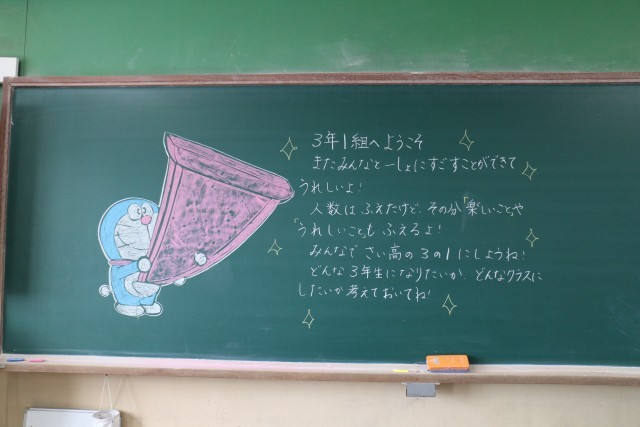 3年1組へようこそ
またみんなと一しょにすごすことができて
うれしいよ!
人数はふえたけど、その分「楽しいこと」や
「うれしいこと」もふえるよ!
みんなでさい高の3の1にしようね!
どんな3年生になりたいか、どんなクラスに
したいか考えておいてね!